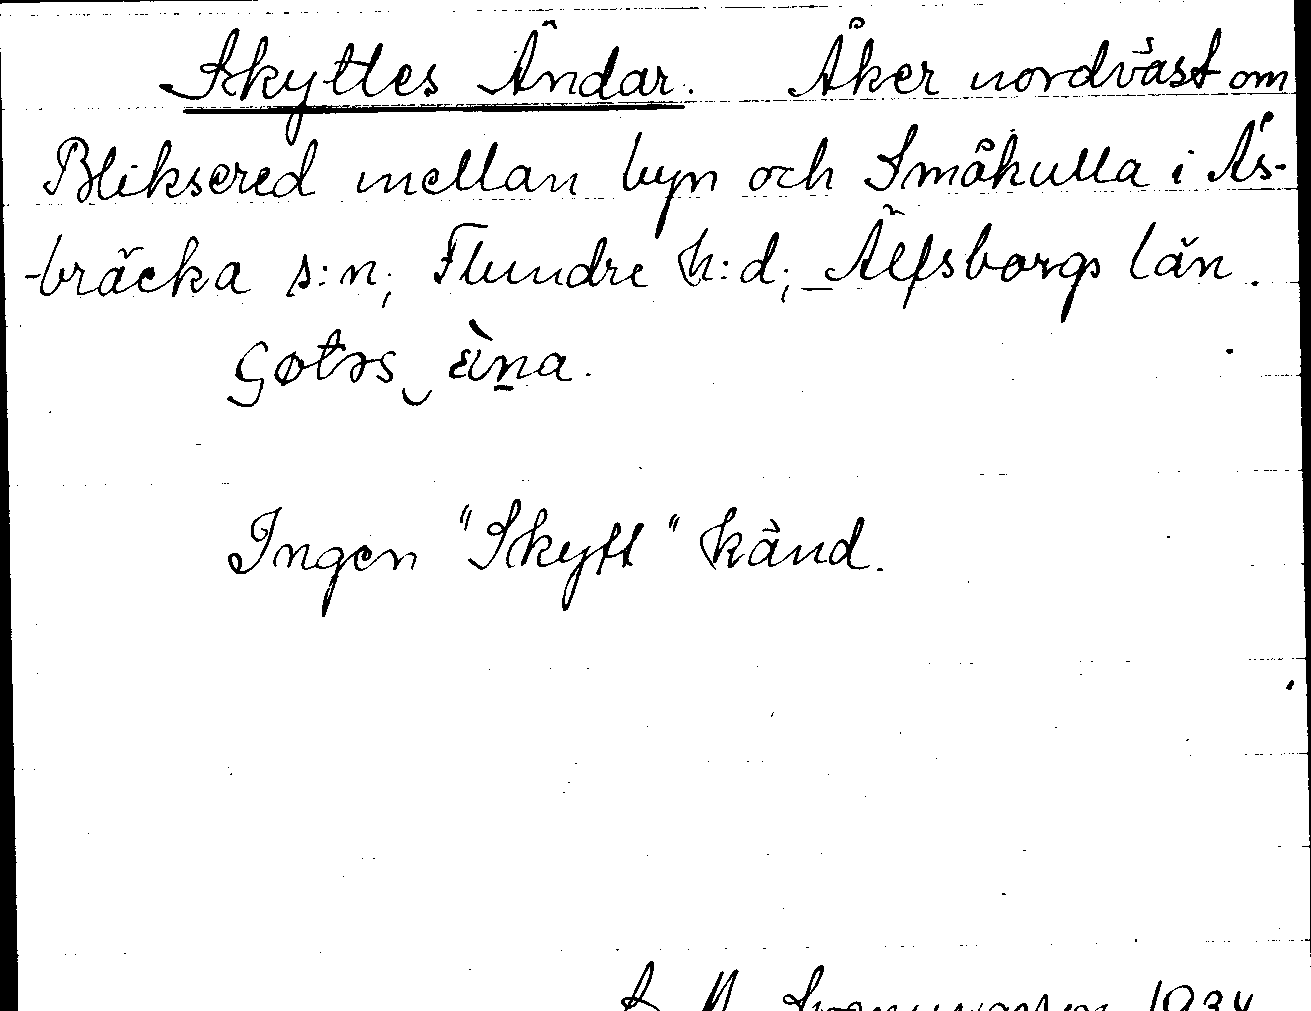 Skyttes Ändar. Åker nordväst om
Bliksered mellan byn och Småkulla i Ås-
bräcka s:n; Flundre h:d; Älfsborgs län.
Ingen "Skytt" känd.
1934